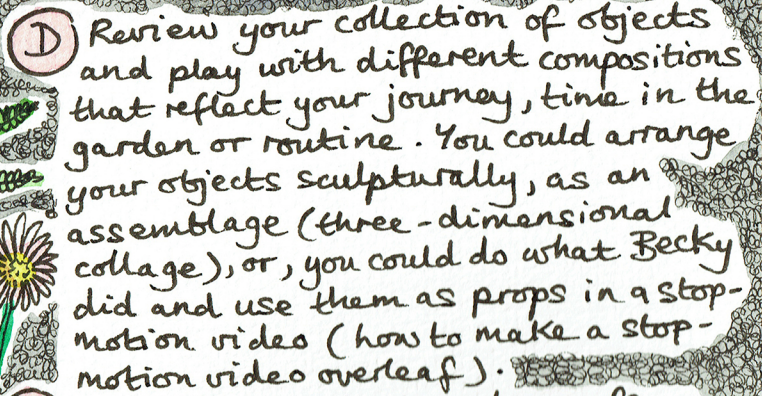 D Review your collection of objects
and play with different compositions
that reflect your journey, time in the
garden or routine. You could arrange
your objects sculpturally, as an
assemblage (three-dimensional
collage), or, you could do what Becky
did and use them as props in a stop-
motion video (how to make a stop-
motion video overleaf).